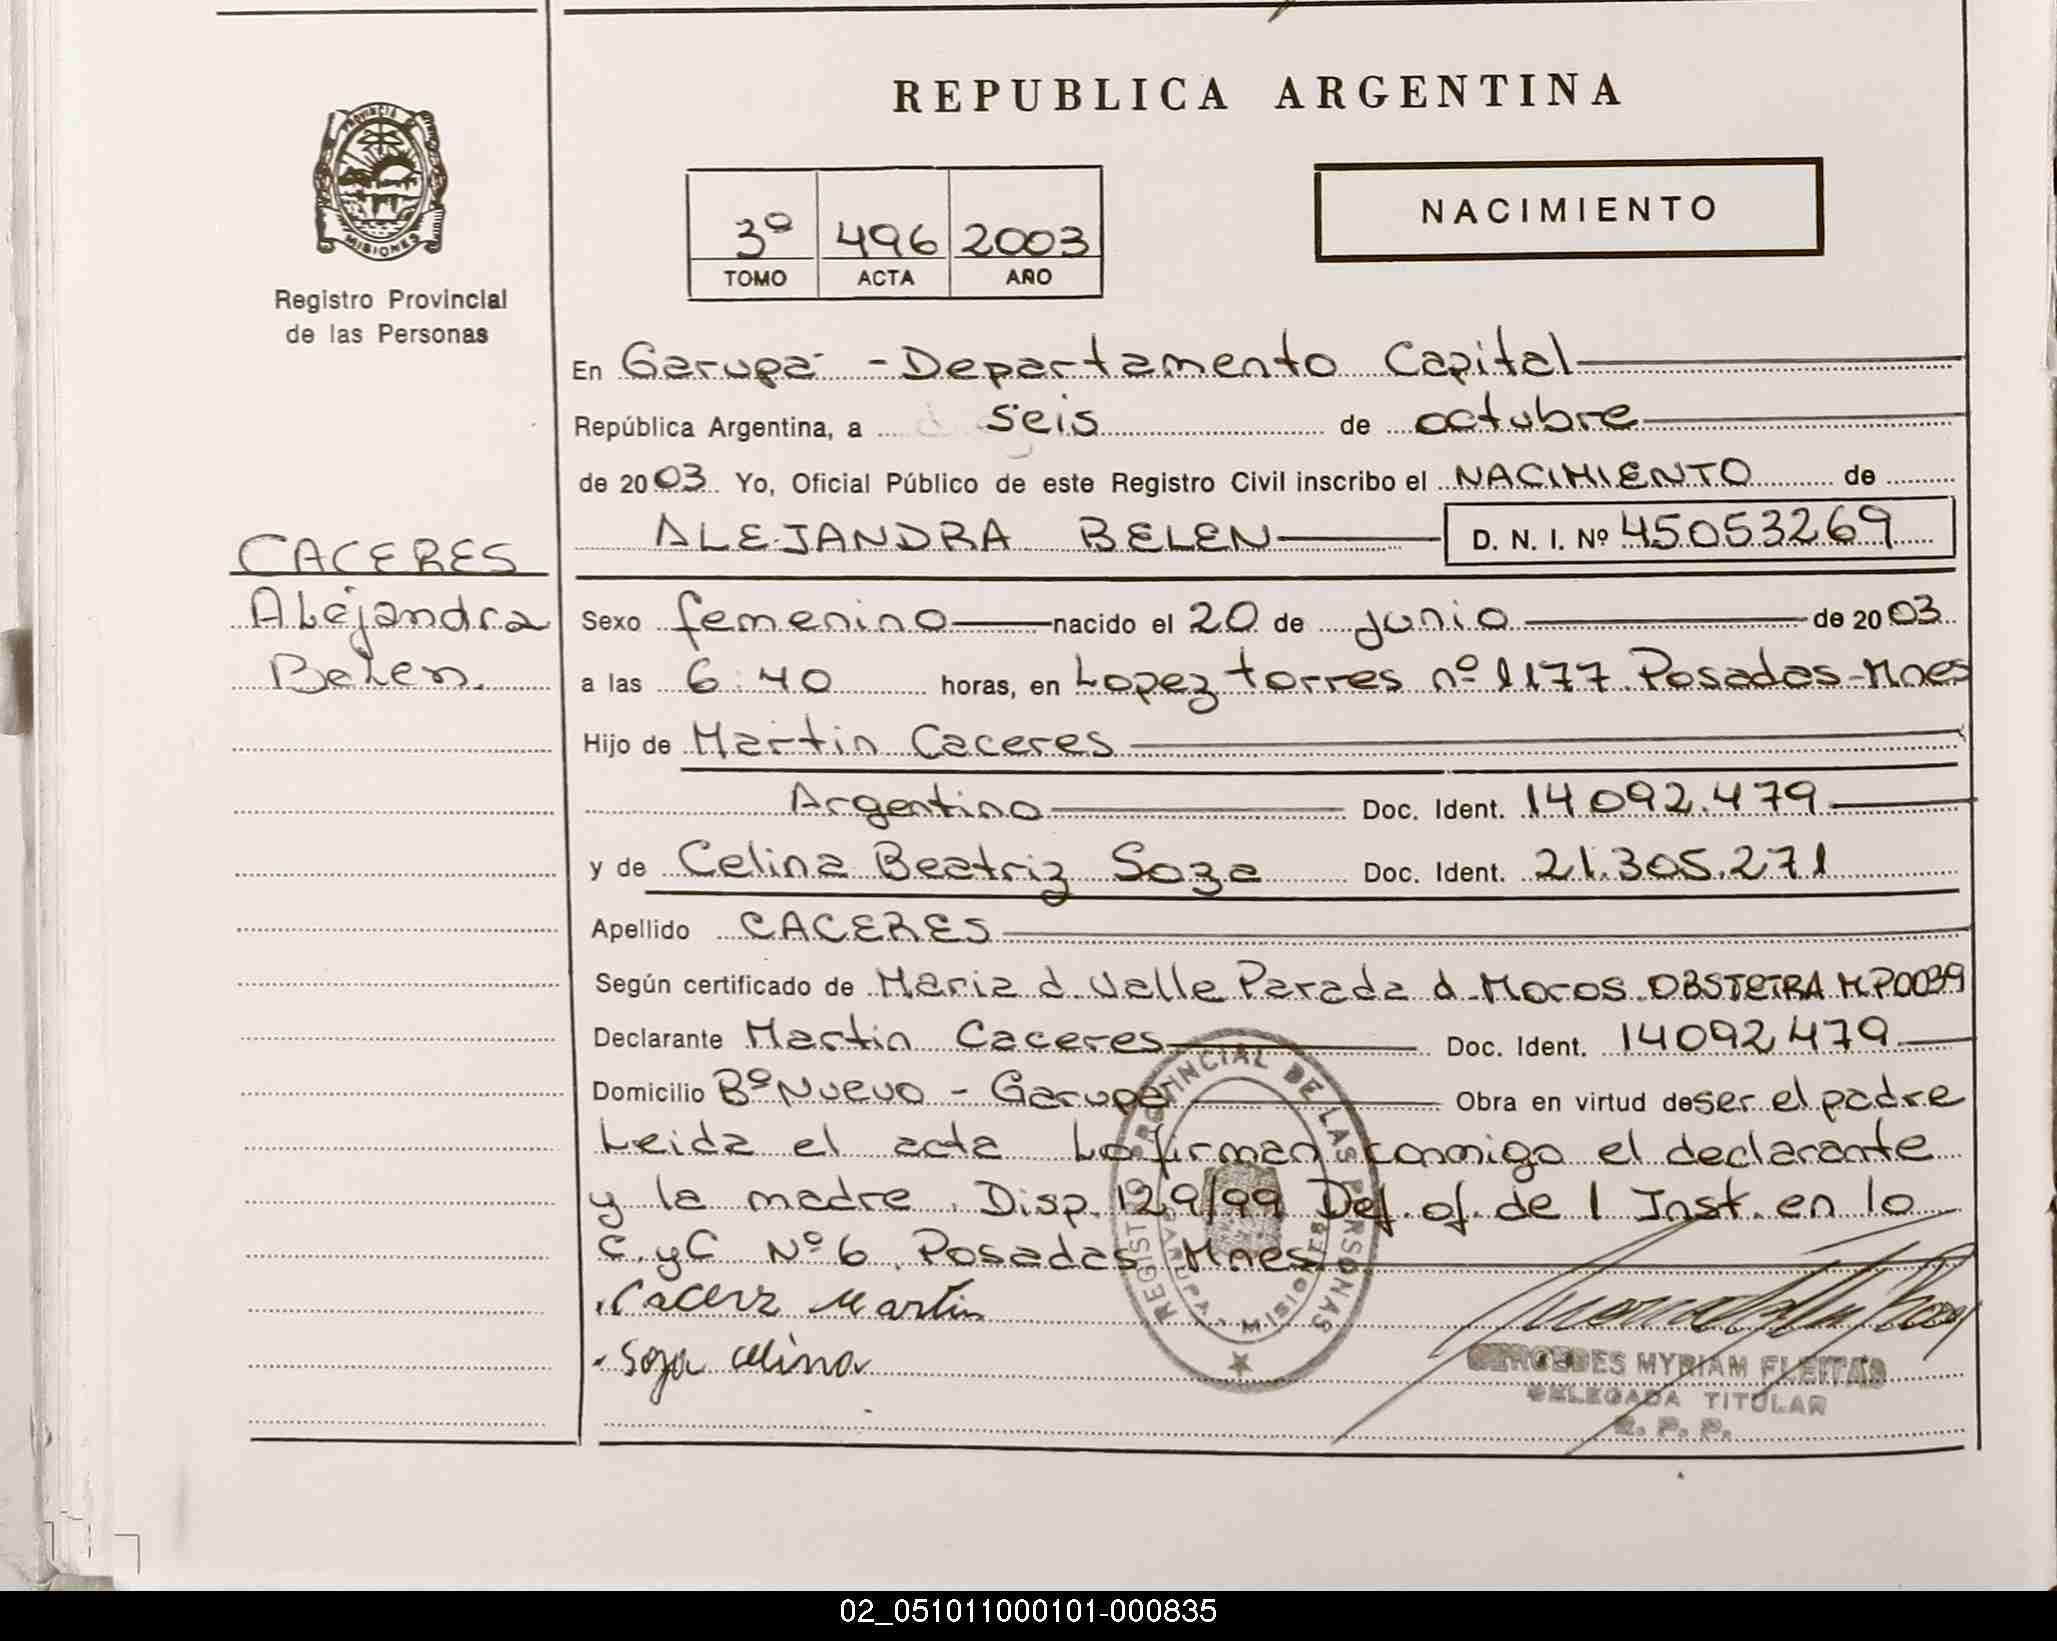 REPUBLICA ARGENTINA
PROVINCIA DE
MISIONES
Registro Provincial
de las Personas
3º 496 2003
TOMO ACTA AÑO
NACIMIENTO
En Garupá - Departamento Capital
República Argentina, a seis de octubre
de 2003 Yo, Oficial Público de este Registro Civil inscribo el NACIMIENTO de
ALEJANDRA BELEN D. N. I. Nº 45053269
CACERES
Alejandra
Belen.
Sexo femenino nacido el 20 de junio de 2003
a las 6:40 horas, en Lopez torres nº 1177 Posadas-Mnes
Hijo de Martin Caceres
Argentino Doc. Ident. 14092.479
y de Celina Beatriz Soza Doc. Ident. 21.305.271
Apellido CACERES
Según certificado de Maria d. Valle Parada d Moros OBSTETRA M.P0039
Declarante Martin Caceres Doc. Ident. 14092479
Domicilio Bº Nuevo - Garupa Obra en virtud de ser el padre
Leida el acta La firman conmigo el declarante
y la madre. Disp. 129/99 Def. of. de 1 Inst. en lo
C.yC Nº 6. Posadas Mnes
Cacerz Martin
Soza Celina
REGISTRO PROVINCIAL DE LAS PERSONAS
GARUPA - MISIONES
MERCEDES MYRIAM FLEITAS
DELEGADA TITULAR
R. P. P.
02_051011000101-000835